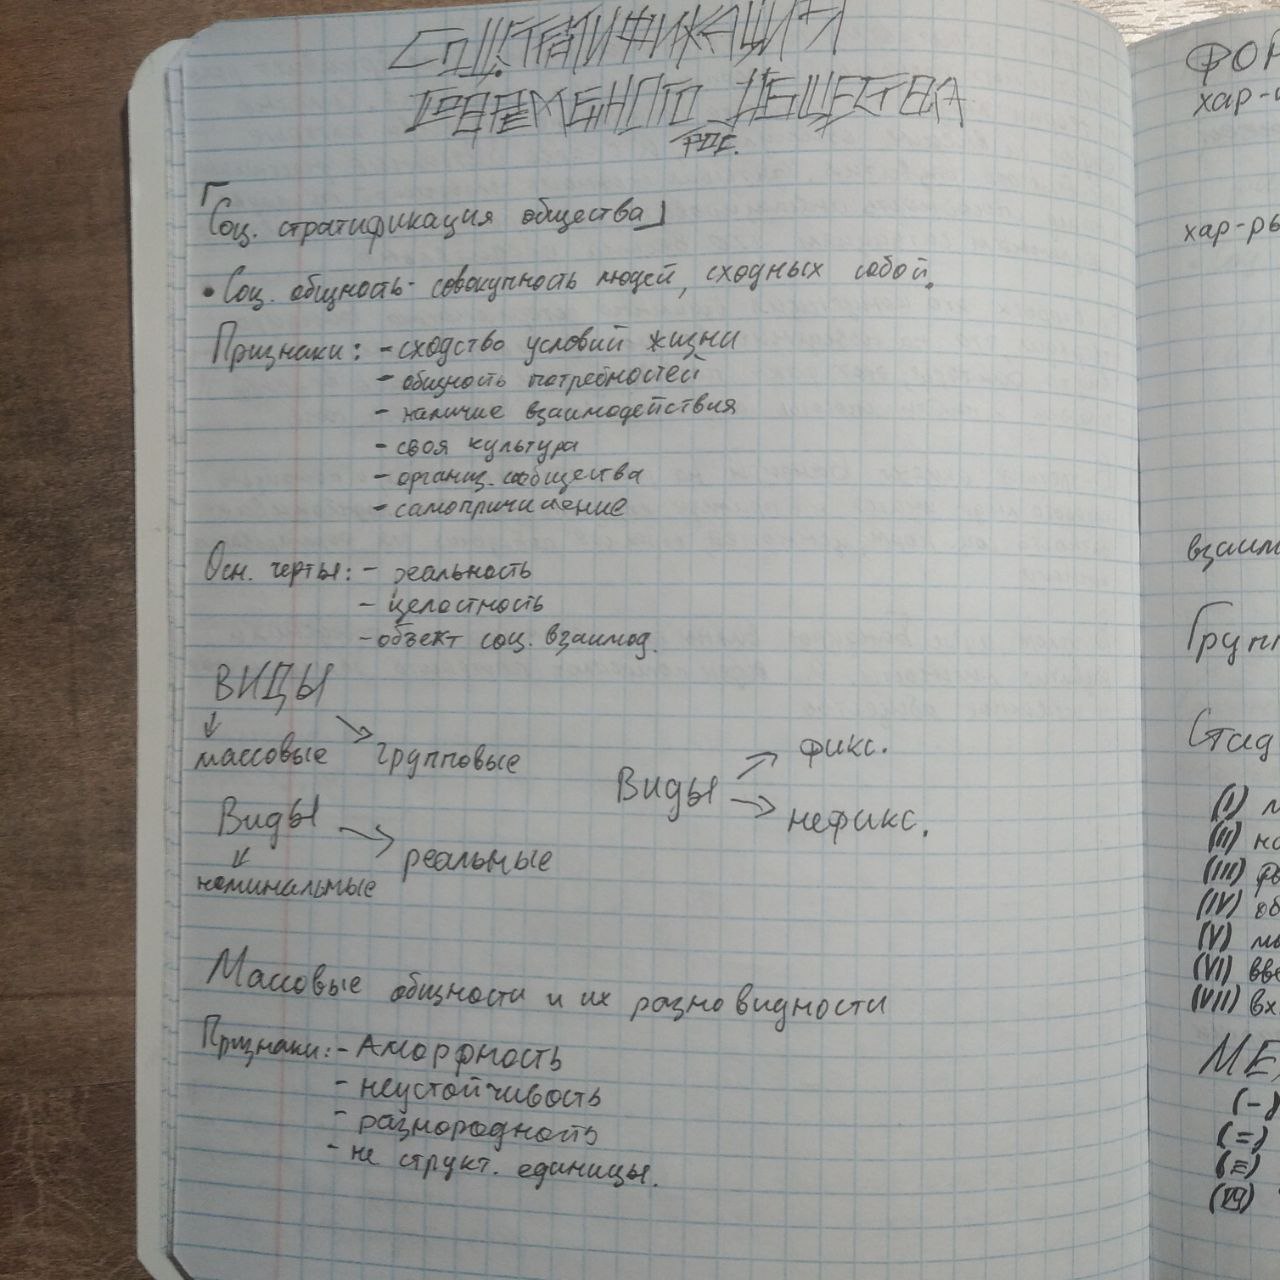 СОЦ. СТРАТИФИКАЦИЯ
СОВРЕМЕННОГО ОБЩЕСТВА
РОС.
「Соц. стратификация общества」
• Соц. общность - совокупность людей, сходных собой.
Признаки: - сходство условий жизни
- общность потребностей
- наличие взаимодействия
- своя культура
- организ. сообщества
- самопричисление
Осн. черты: - реальность
- целостность
- объект соц. взаимод.
ВИДЫ
массовые групповые
Виды фикс.
нефикс.
Виды
номинальные реальные
Массовые общности и их разновидности
Признаки: - Аморфность
- неустойчивость
- разнородность
- не структ. единицы.
ФОР
хар-
хар-ры
взаим
Групп
Стад
(I)
(II) на
(III)
(IV) об
(V)
(VI) вве
(VII) вх
МЕ
(-)
(=)
(≡)